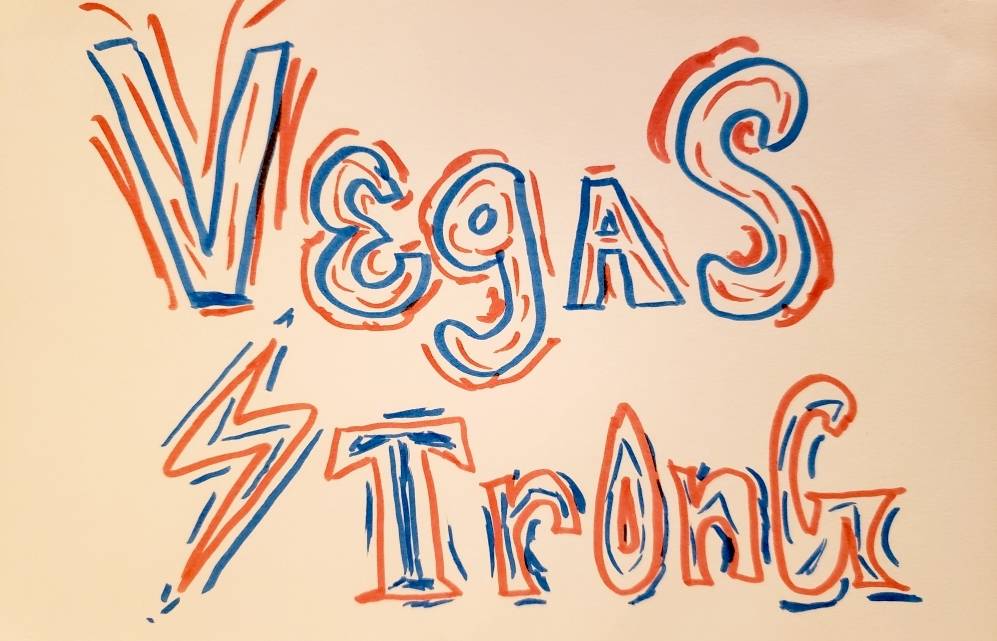 VegaS
STrOnG